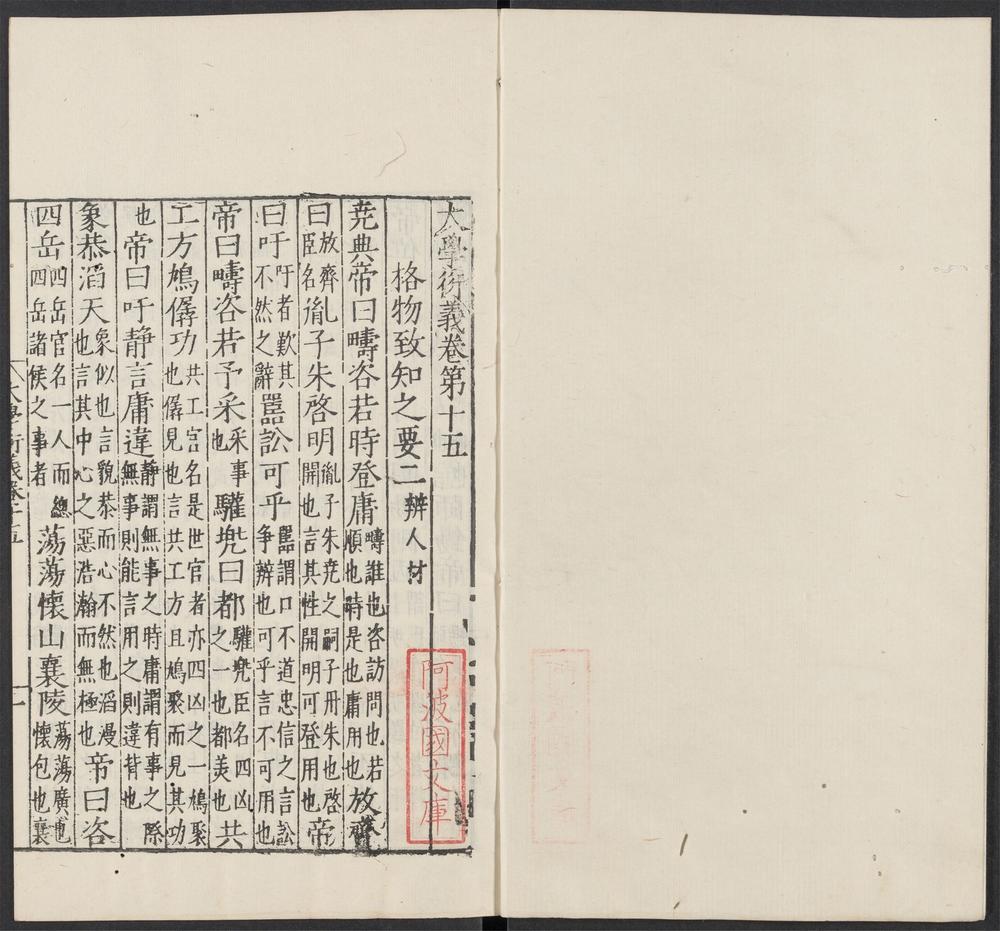 大學衍義卷第十五
格物致知之要二辨人材
堯典帝曰疇咨若時登庸疇誰也咨訪問也若順也時是也庸用也放齊
曰放齊臣名胤子朱啓明胤子朱堯之嗣子丹朱也啓開也言其性開明可登用也帝
曰吁吁者歎其不然之辭嚚訟可乎嚚謂口不道忠信之言訟争辨也可乎言不可用也
帝曰疇咨若予采采事也驩兠曰都驩兠臣名四凶之一也都美也共
工方鳩僝功共工官名是世官者亦四凶之一鳩聚也僝見也言共工方且鳩聚而見其功
也帝曰吁静言庸違静謂無事之時庸謂有事之際無事則能言用之則違背也
象恭滔天象似也言貌恭而心不然也滔漫也言其中心之惡浩瀚而無極也帝曰咨
四岳四岳官名一人而總四岳諸侯之事者蕩蕩懷山襄陵蕩蕩廣也懷包也襄
阿波國文庫